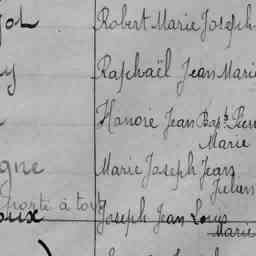 Robert Marie Joseph
Raphaël Jean Marie
Honoré Jean Bapt. Pierre
Marie
gne Marie Joseph Jean
Julien
porté à tort
oux Joseph Jean Louis
Marie